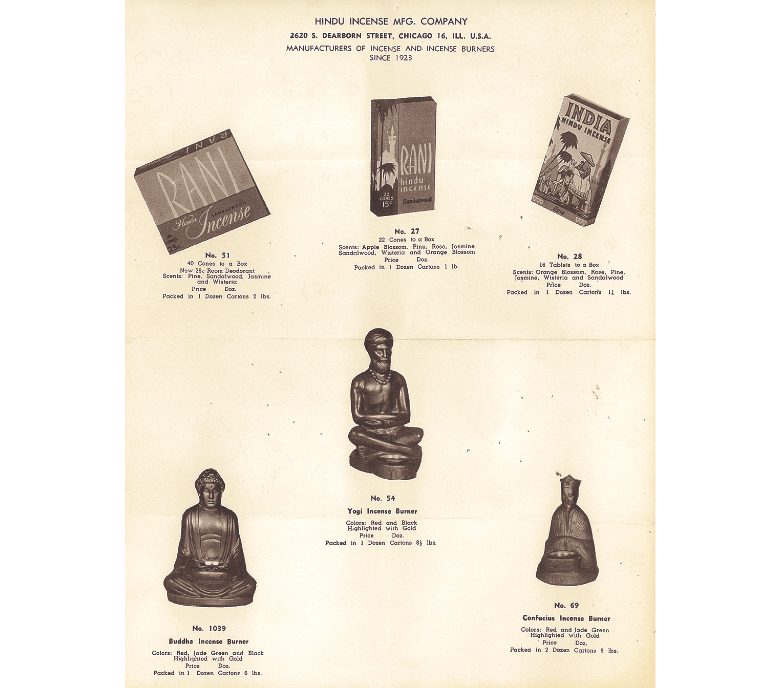 HINDU INCENSE MFG. COMPANY
2620 S. DEARBORN STREET, CHICAGO 16, ILL. U.S.A.
MANUFACTURERS OF INCENSE AND INCENSE BURNERS
SINCE 1923
RANI
RANI
SANDALWOOD
Hindu
Incense
No. 51
40 Cones to a Box
Now 25c Room Deodorant
Scents: Pine, Sandalwood, Jasmine
and Wisteria
Price Doz.
Packed in 1 Dozen Cartons 2 lbs.
RANI
hindu
INCENSE
22
CONES
15¢
Sandalwood
No. 27
22 Cones to a Box
Scents: Apple Blossom, Pine, Rose, Jasmine
Sandalwood, Wisteria and Orange Blossom
Price Doz.
Packed in 1 Dozen Cartons 1 lb.
INDIA
HINDU INCENSE
No. 28
16 Tablets to a Box
Scents: Orange Blossom, Rose, Pine,
Jasmine, Wisteria and Sandalwood
Price Doz.
Packed in 1 Dozen Cartons 1¼ lbs.
No. 54
Yogi Incense Burner
Colors: Red and Black
Highlighted with Gold
Price Doz.
Packed in 1 Dozen Cartons 8½ lbs.
No. 1039
Buddha Incense Burner
Colors: Red, Jade Green and Black
Highlighted with Gold
Price Doz.
Packed in 1 Dozen Cartons 6 lbs.
No. 69
Confucius Incense Burner
Colors: Red and Jade Green
Highlighted with Gold
Price Doz.
Packed in 2 Dozen Cartons lbs.